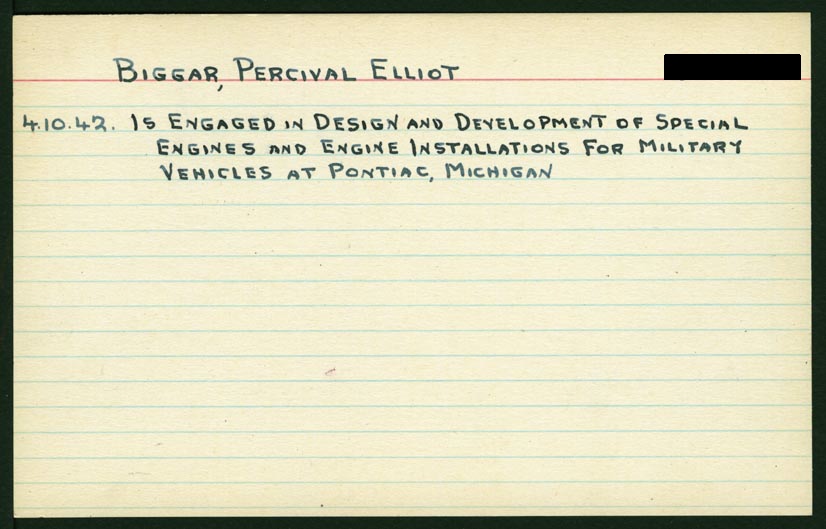 BIGGAR, PERCIVAL ELLIOT
4.10.42. IS ENGAGED IN DESIGN AND DEVELOPMENT OF SPECIAL
ENGINES AND ENGINE INSTALLATIONS FOR MILITARY
VEHICLES AT PONTIAC, MICHIGAN